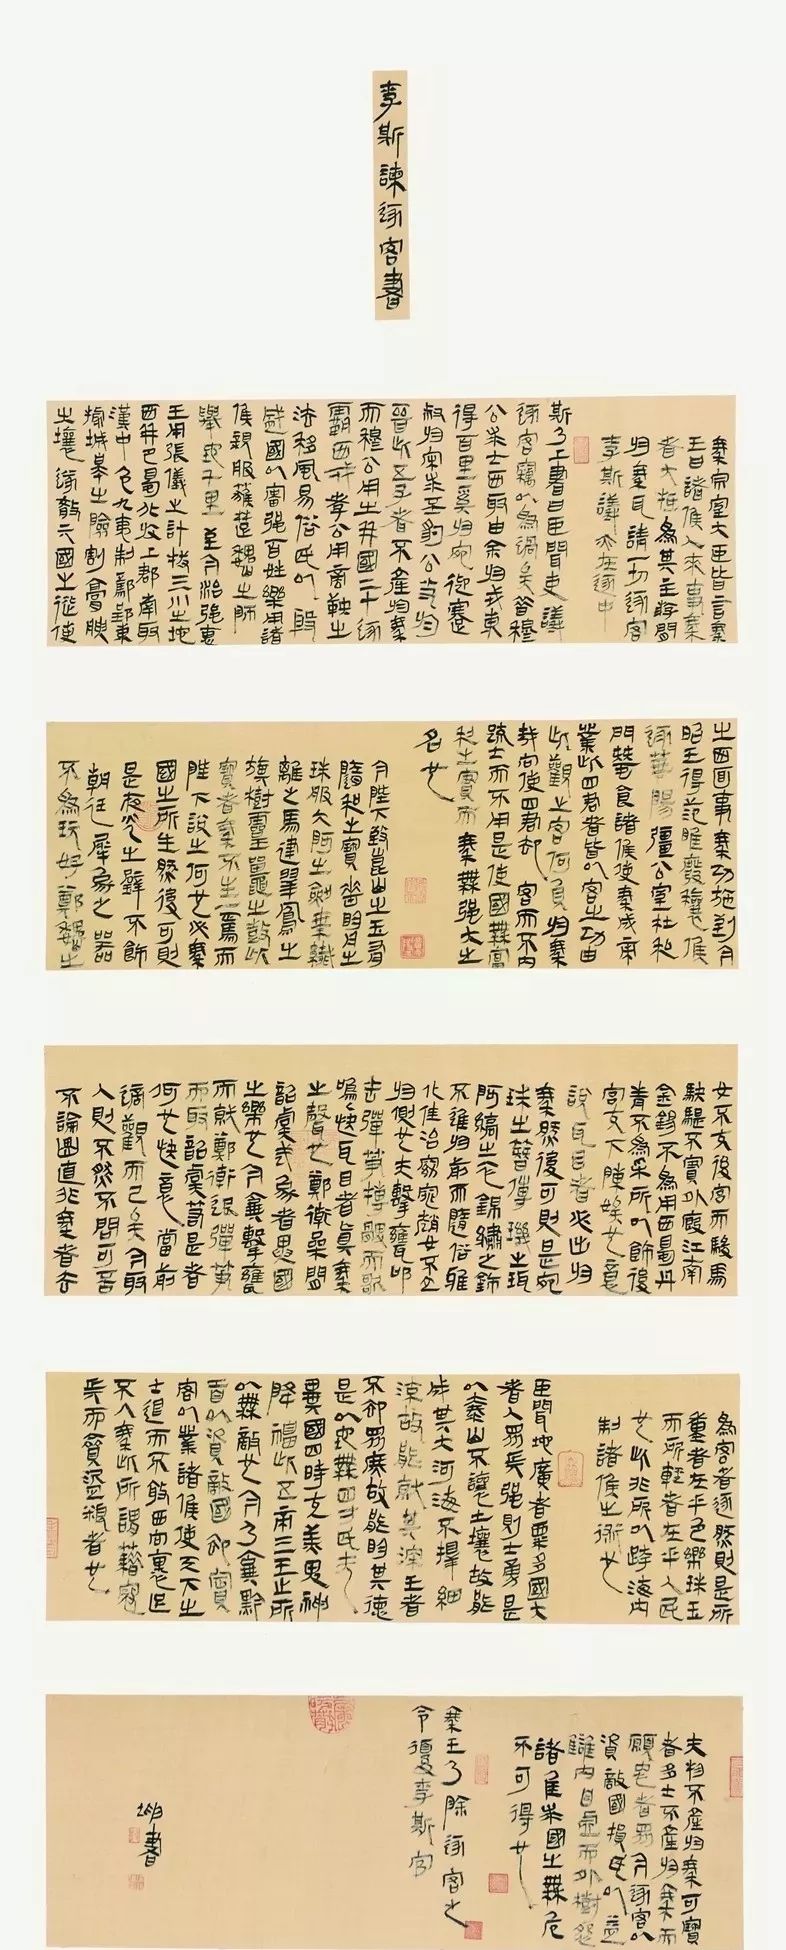 李斯諫逐客書
秦宗室大臣皆言秦
王曰諸侯人來事秦
者大抵為其主游間
歸秦耳請一切逐客
李斯議亦在逐中
斯乃上書曰臣聞吏議
逐客竊以為過矣昔穆
公求士西取由余歸戎東
得百里奚歸宛迎蹇
叔歸宋求丕豹公孫歸
晉此五子者不產歸秦
而穆公用之并國二十遂
霸西戎孝公用商鞅之
法移風易俗民以殷
盛國以富強百姓樂用諸
侯親服獲楚魏之師
舉地千里至今治強惠
王用張儀之計拔三川之地
西并巴蜀北收上郡南取
漢中包九夷制鄢郢東
據城皋之險割膏腴
之壤遂散六國之從使
之西面事秦功施到今
昭王得范雎廢穰侯
逐華陽彊公室杜私
門蠶食諸侯使秦成帝
業此四君者皆以客之功由
此觀之客何負歸秦
哉向使四君却客而不內
疏士而不用是使國無富
利之實而秦無強大之
名也
今陛下致崑山之玉有
隨和之寶垂明月之
珠服太阿之劍乘纖
離之馬建翠鳳之
旗樹靈鼉之鼓此
寶者秦不生一焉而
陛下說之何也必秦
國之所生然後可則
是夜光之璧不飾
朝廷犀象之器
不為玩好鄭魏之
女不充後宮而駿馬
駃騠不實外廄江南
金錫不為用西蜀丹
青不為采所以飾後
宮充下陳娛心意
說耳目者必出歸
秦然後可則是宛
珠之簪傅璣之珥
阿縞之衣錦繡之飾
不進歸前而隨俗雅
化佳冶窈窕趙女不立
歸側也夫擊甕叩
缶彈箏搏髀而歌
嗚快耳目者真秦
之聲也鄭衛桑間
韶虞武象者異國
之樂也今棄擊甕
而就鄭衛退彈箏
而取韶虞若是者
何也快意當前
適觀而已矣今取
人則不然不問可否
不論曲直非秦者去
為客者逐然則是所
重者在乎色樂珠玉
而所輕者在乎人民
也此非所以跨海內
制諸侯之術也
臣聞地廣者粟多國大
者人眾兵強則士勇是
以泰山不讓土壤故能
成其大河海不擇細
流故能就其深王者
不卻眾庶故能明其德
是以地無四方民無
異國四時充美鬼神
降福此五帝三王之所
以無敵也今乃棄黔
首以資敵國卻賓
客以業諸侯使天下之
士退而不敢西向裹足
不入秦此所謂藉寇
兵而齎盜糧者也
夫物不產歸秦可寶
者多士不產歸秦而
願忠者眾今逐客以
資敵國損民以益
讎內自虛而外樹怨
諸侯求國之無危
不可得也
秦王乃除逐客之
令復李斯官
坤書